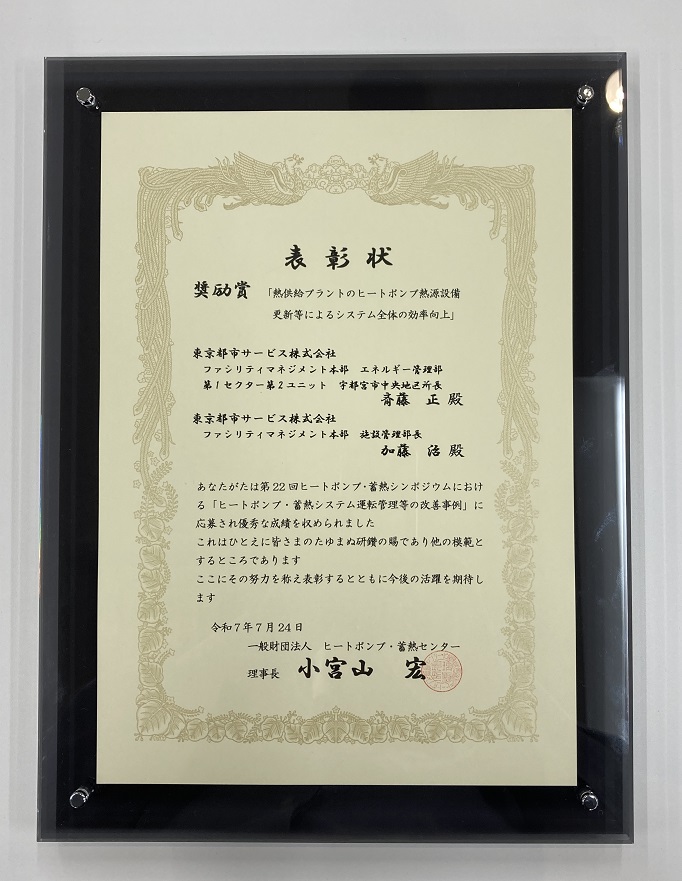 表彰状
奨励賞 「熱供給プラントのヒートポンプ熱源設備
更新等によるシステム全体の効率向上」
東京都市サービス株式会社
ファシリティマネジメント本部 エネルギー管理部
第1セクター第2ユニット 宇都宮市中央地区所長
斉藤 正 殿
東京都市サービス株式会社
ファシリティマネジメント本部 施設管理部長
加藤 治 殿
あなたがたは第22回ヒートポンプ・蓄熱シンポジウムにおけ
る「ヒートポンプ・蓄熱システム運転管理等の改善事例」に
応募され優秀な成績を収められました
これはひとえに皆さまのたゆまぬ研鑽の賜であり他の模範と
するところであります
ここにその努力を称え表彰するとともに今後の活躍を期待し
ます
令和7年7月24日
一般財団法人 ヒートポンプ・蓄熱センター
理事長 小宮山 宏